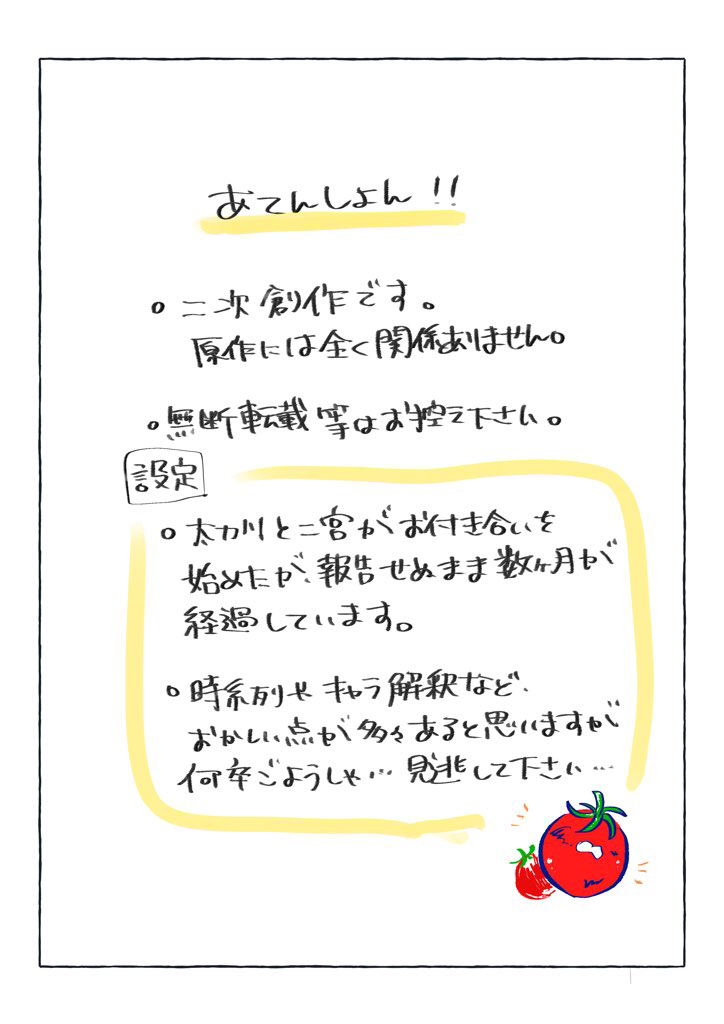 あてんしょん!!
。二次創作です。
原作には全く関係ありません。
。無断転載等はお控え下さい。
設定
。太刀川と二宮がお付き合いを
始めたが、報告せぬまま数ヶ月が
経過しています。
。時系列やキャラ解釈など、
おかしい点が多々あると思いますが
何卒ごようしゃ… 見逃して下さい…